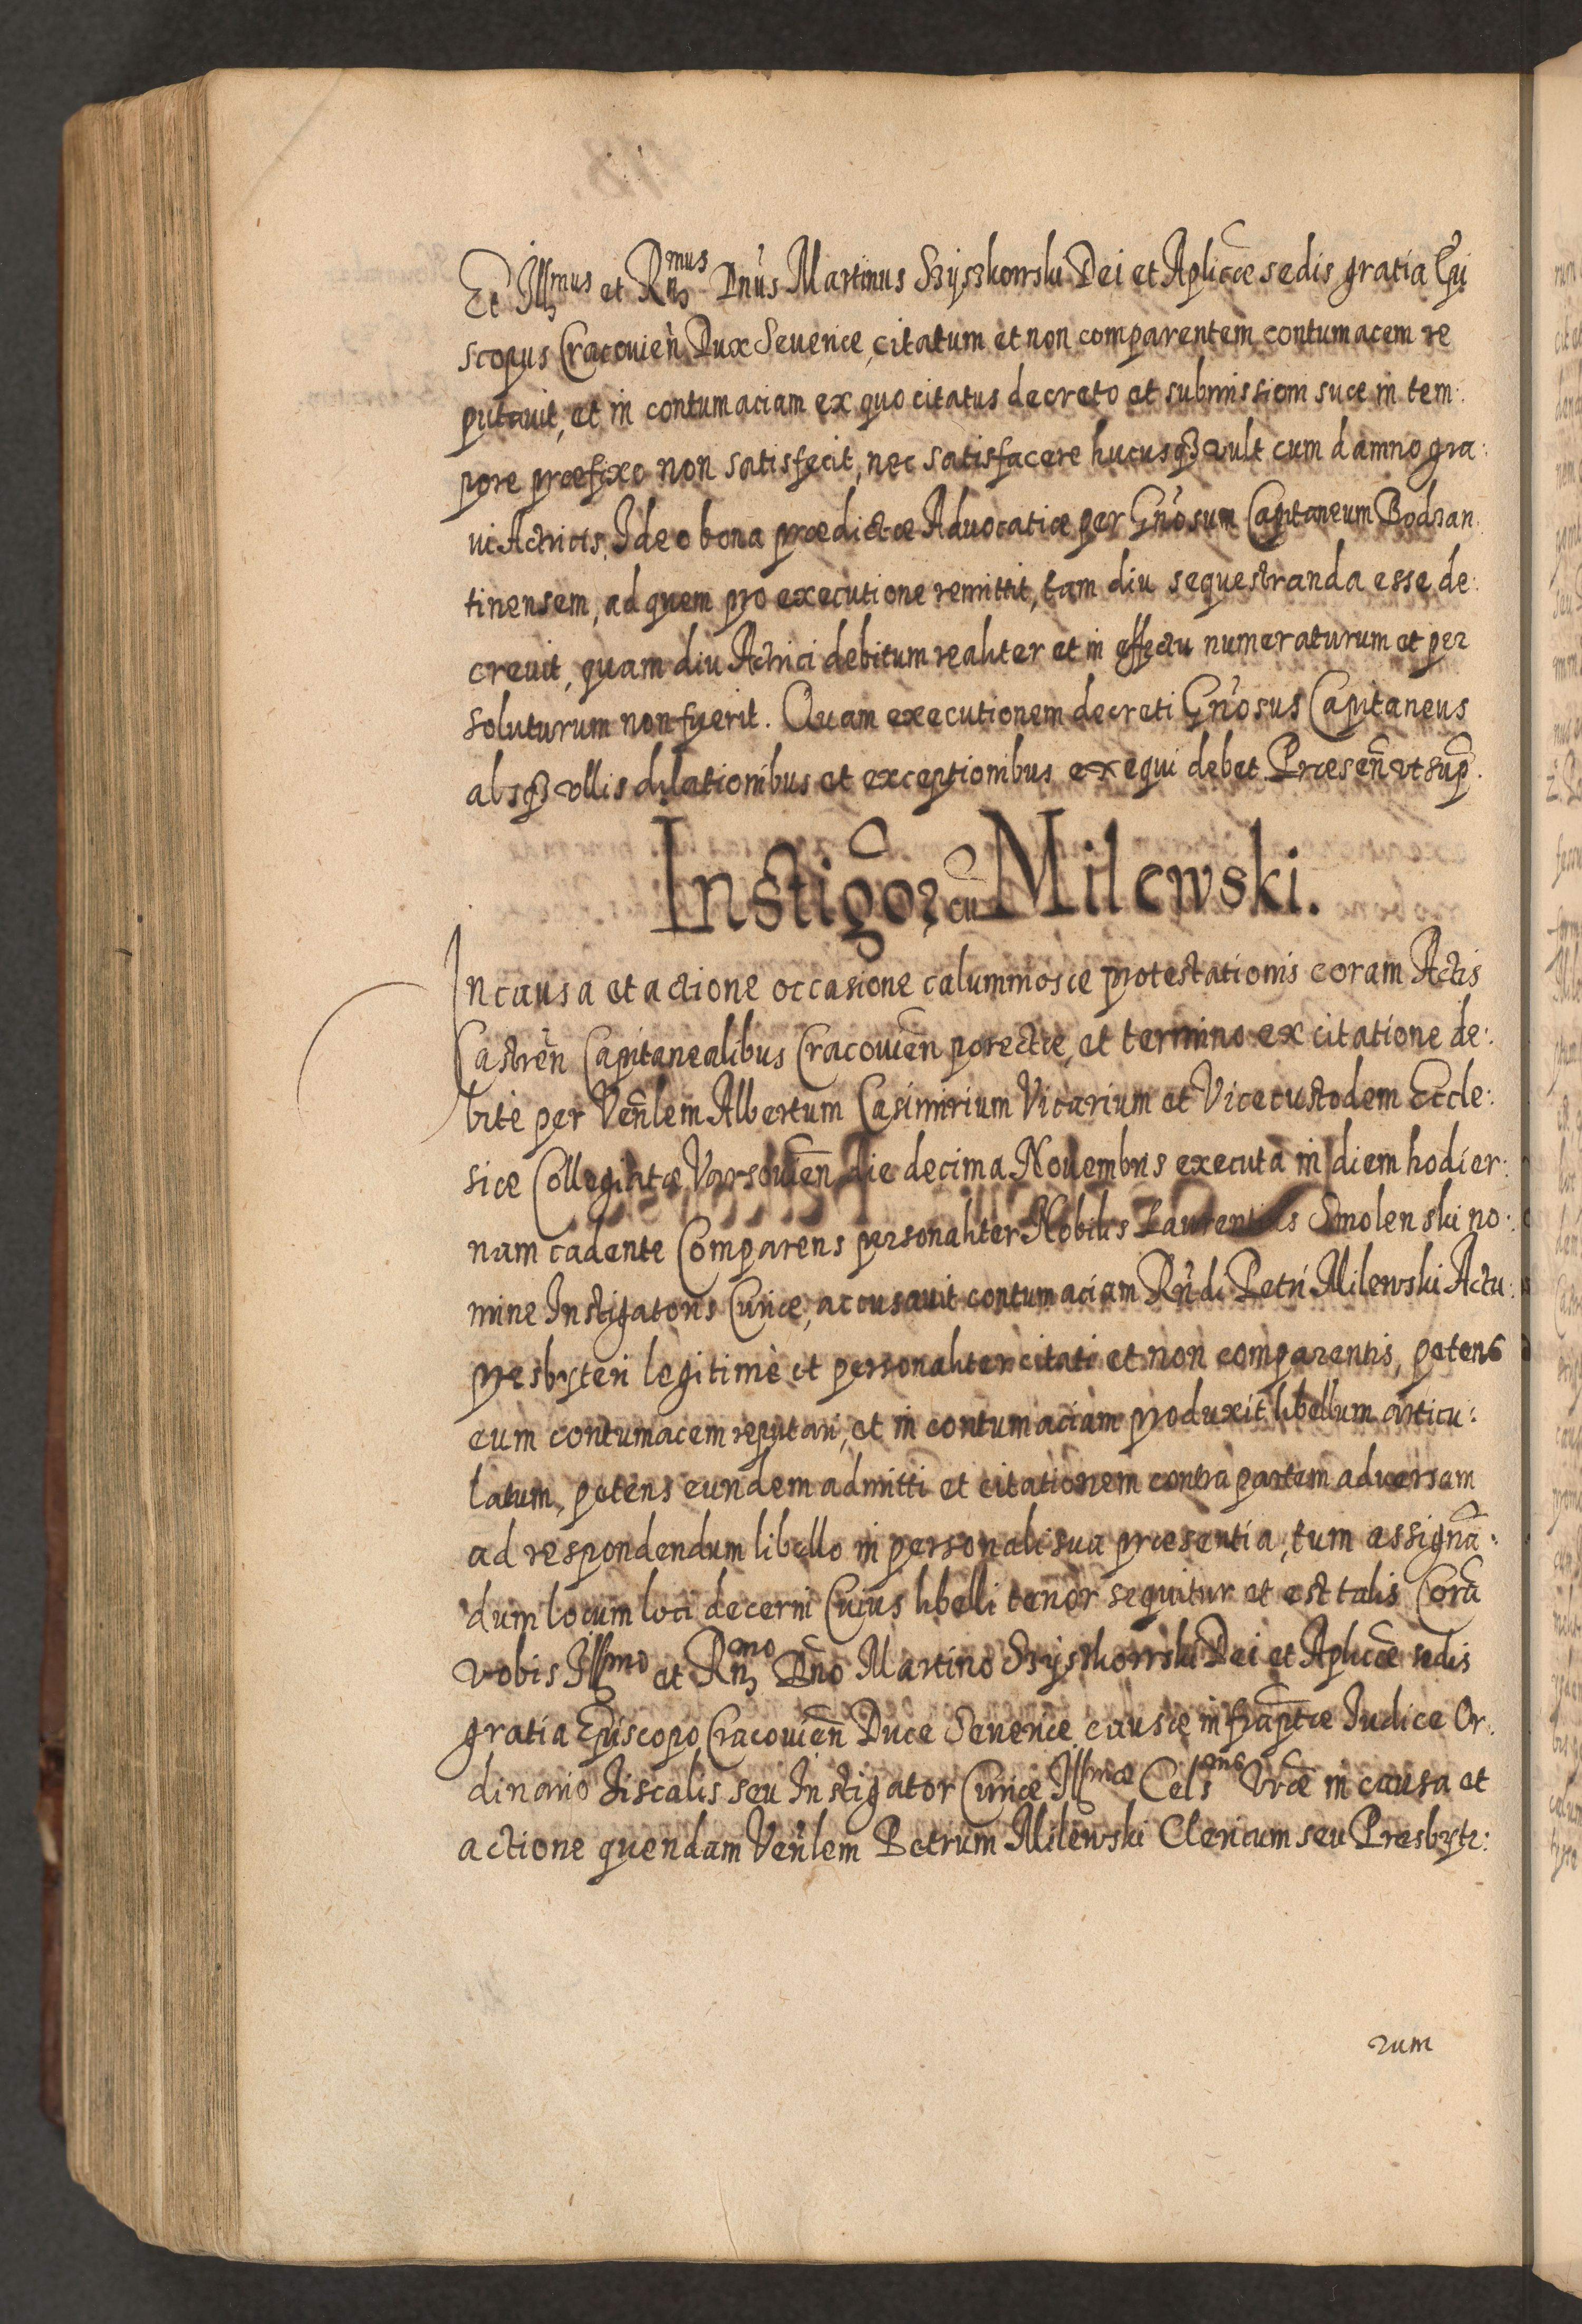 Et Illmus et Rmus Dnus Martinus Szyszkowski Dei et Aplicæ sedis gratia Epi
scopus Cracovien Dux Severiæ, citatum et non comparentem contumacem re
putavit, et in contumaciam ex quo citatus decreto et submissioni suæ in tem:
pore præfixo non satisfecit, nec satisfacere hucusq vult cum damno gra:
vi Actricis. Ideo bona prædictæ Advocatiæ per Gnosum Capitaneum Bodzan:
tinensem, ad quem pro executione remittit, tam diu sequestranda esse de:
crevit, quam diu Actrici debitum realiter et in effectu numeraturum et per
soluturum non fuerit. Quam executionem decreti Gnosus Capitaneus
absq ullis dilationibus et exceptionibus exequi debet Præsen ut sup.
Instigor cu Milewski.
In causa et actione occasione calumniosæ protestationis coram Actis
Castren Capitanealibus Cracovien porectæ, et termino ex citatione de:
bitè per Venlem Albertum Casimirium Vicarium et Vicecustodem Eccle:
siæ Collegiatæ Varsovien die decima Novembris executa in diem hodier:
nam cadente Comparens personaliter Nobilis Laurentius Smolenski no:
mine Instigatoris Curiæ, accusavit contumaciam Rndi Petri Milewski Actu:
presbyteri legitimè et personaliter citati et non comparentis, petens
eum contumacem reputari, et in contumaciam produxit libellum articu:
latum, petens eundem admitti et citationem contra partem adversam
ad respondendum libello in personali sua præsentia, tum assignã:
dum locum loci decerni Cuius libelli tenor sequitur et est talis Corã
vobis Illmo et Rmo Dno Martino Szyszkowski Dei et Aplicæ sedis
gratia Episcopo Cracovien Duce Severiæ causæ infraptæ Iudice Or:
dinario Fiscalis seu Instigator Curiæ Illmæ Celsnis Vræ in causa et
actione quendam Venlem Petrum Milewski Clericum seu Presbyte:
rum